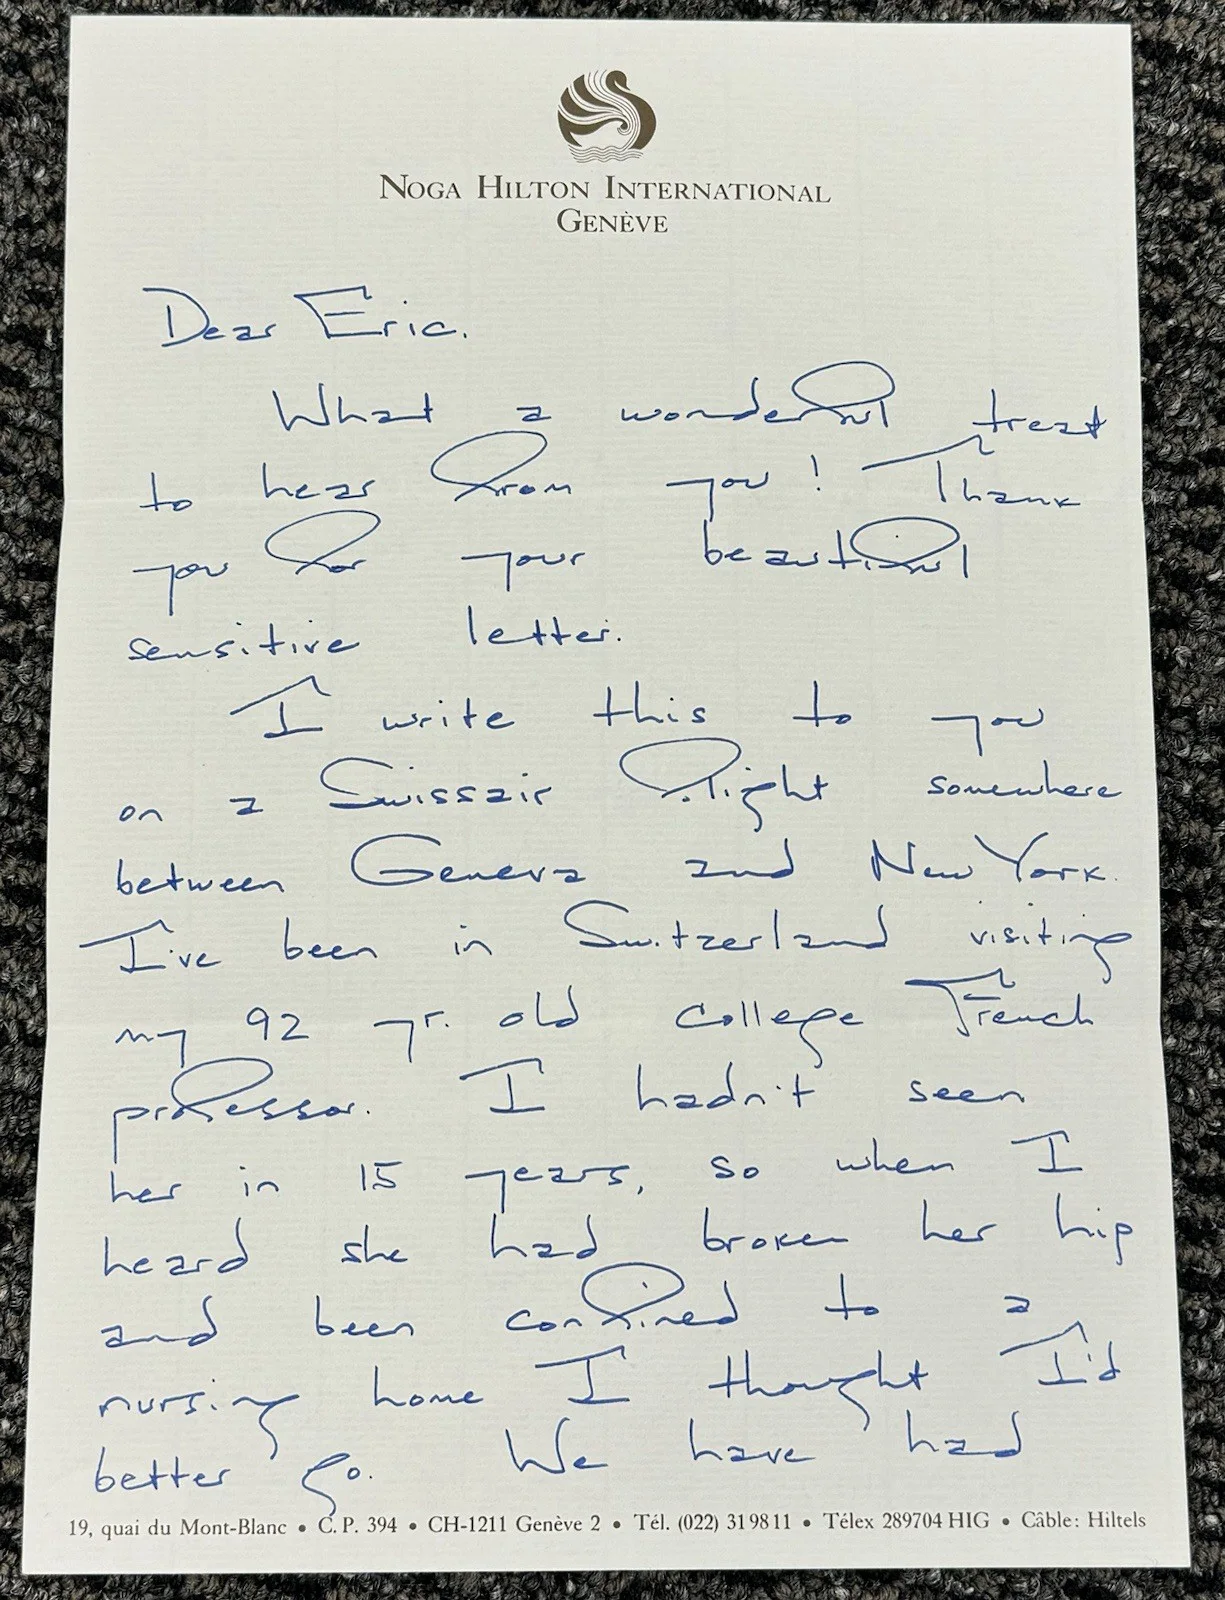 NOGA HILTON INTERNATIONAL
GENÈVE
Dear Eric.
What a wonderful treat
to hear from you! Thank
you for your beautiful
sensitive letter.
I write this to you
on a Swissair flight somewhere
between Geneva and New York.
I've been in Switzerland visiting
my 92 yr. old college French
professor. I hadn't seen
her in 15 years, so when I
heard she had broken her hip
and been confined to a
nursing home I thought I'd
better go. We have had
19, quai du Mont-Blanc • C.P. 394 • CH-1211 Genève 2 • Tél. (022) 319811 • Télex 289704 HIG • Câble: Hiltels